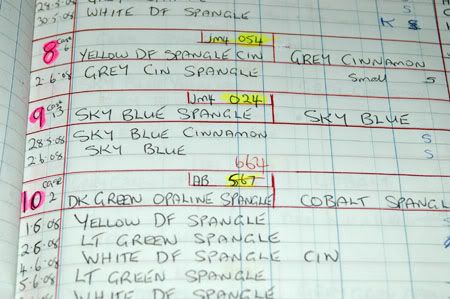 28.5.08
30.5.08 WHITE DF SPANGLE K S
Jm4 054
8 Cage 6 YELLOW DF SPANGLE CIN GREY CINNAMON
2.6.08 GREY CIN SPANGLE Small S
Jm4 024
9 Cage 13 SKY BLUE SPANGLE SKY BLUE
28.5.08 SKY BLUE CINNAMON S
2.6.08 SKY BLUE S
664
AB 567
10 Cage 2 DK GREEN OPALINE SPANGLE COBALT SPANGL
1.6.08 YELLOW DF SPANGLE
2.6.08 LT GREEN SPANGLE
4.6.08 WHITE DF SPANGLE CIN
5.6.08 LT GREEN SPANGLE
WHITE DF SPANGLE